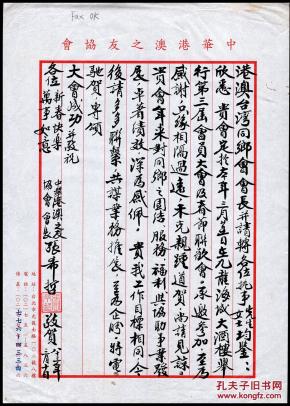 Fax OK
中華港澳之友協會
港澳台灣同鄉會會長並請轉各位執事先生女士均鑒：
欣悉 貴會定於本年三月五日在九龍海城大酒樓舉
行第三屆會員大會及春節聯歡會，承邀參加，至為
感謝。只緣相隔過遠，未克親踵道賀，尚請見諒。
貴會年來對同鄉之團結、服務、福利與協助事業發
展，卓著績效，深為感佩。貴我工作目標相同，今
後請多多聯繫，共謀業務推展，至為企盼。特電
馳賀，專頌
大會成功，並致祝
各位 新春快樂
萬事如意
中華港澳之友
協會會長 張希哲 敬賀
孔夫子旧书网